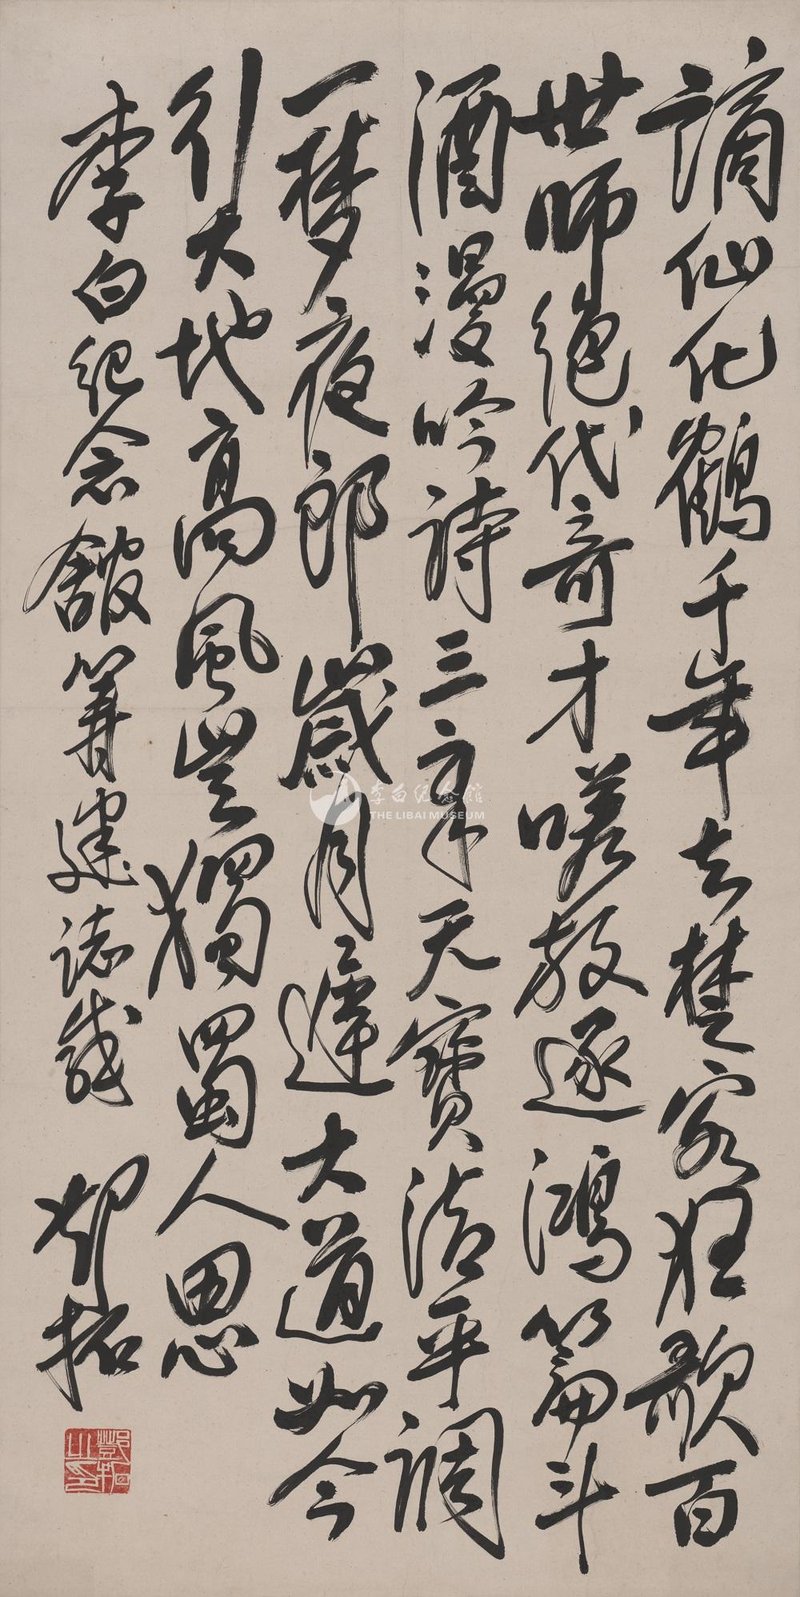 謫仙化鶴千年去楚客狂歌百
世師絕代奇才嗟放逐鴻篇斗
酒漫吟詩三章天寶清平調
一夢夜郎歲月遲大道如今
引大地高風豈獨蜀人思
李白紀念館籌建誌盛
鄧拓
鄧拓之印
李白纪念馆
THE LIBAI MUSEUM